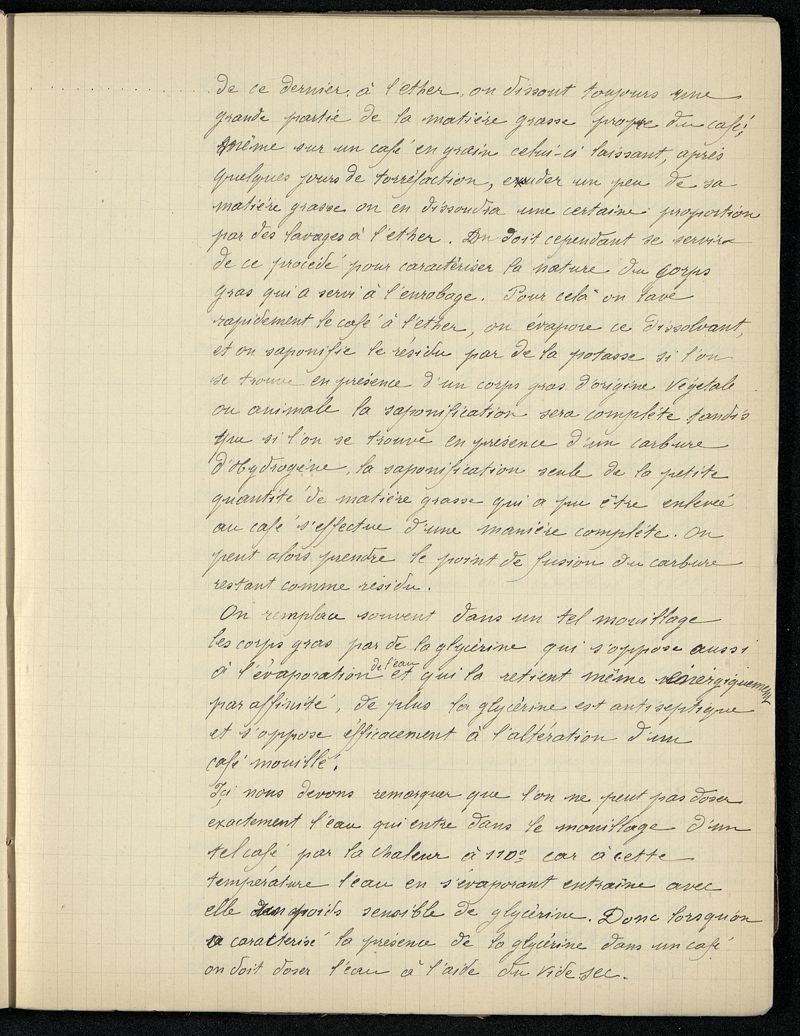 de ce dernier, à l'éther, on dissout toujours une
grande partie de la matière grasse propre du café;
même sur un café en grain celui-ci laissant, après
quelques jours de torréfaction, exuder un peu de sa
matière grasse on en dissoudra une certaine proportion
par des lavages à l'éther. On doit cependant se servir
de ce procédé pour caractériser la nature du corps
gras qui a servi à l'enrobage. Pour celà on lave
rapidement le café à l'éther, on évapore ce dissolvant,
et on saponifie le résidu par de la potasse si l'on
se trouve en présence d'un corps gras d'origine végétale
ou animale la saponification sera complète tandis
que si l'on se trouve en présence d'un carbure
d'Hydrogène, la saponification seule de la petite
quantité de matière grasse qui a pu être enlevée
au café s'effectue d'une manière complète. On
peut alors prendre le point de fusion du carbure
restant comme résidu.
On remplace souvent dans un tel mouillage
les corps gras par de la glycérine qui s'oppose aussi
à l'évaporation de l'eau et qui la retient même énergiquement
par affinité, de plus la glycérine est antiseptique
et s'oppose éfficacement à l'altération d'un
café mouillé.
Içi nous devons remarquer que l'on ne peut pas doser
exactement l'eau qui entre dans le mouillage d'un
tel café par la chaleur à 110° car à cette
température l'eau en s'évaporant entraîne avec
elle un poids sensible de glycérine. Donc lorsqu'on
a caractérisé la présence de la glycérine dans un café
on doit doser l'eau à l'aide du vide sec.